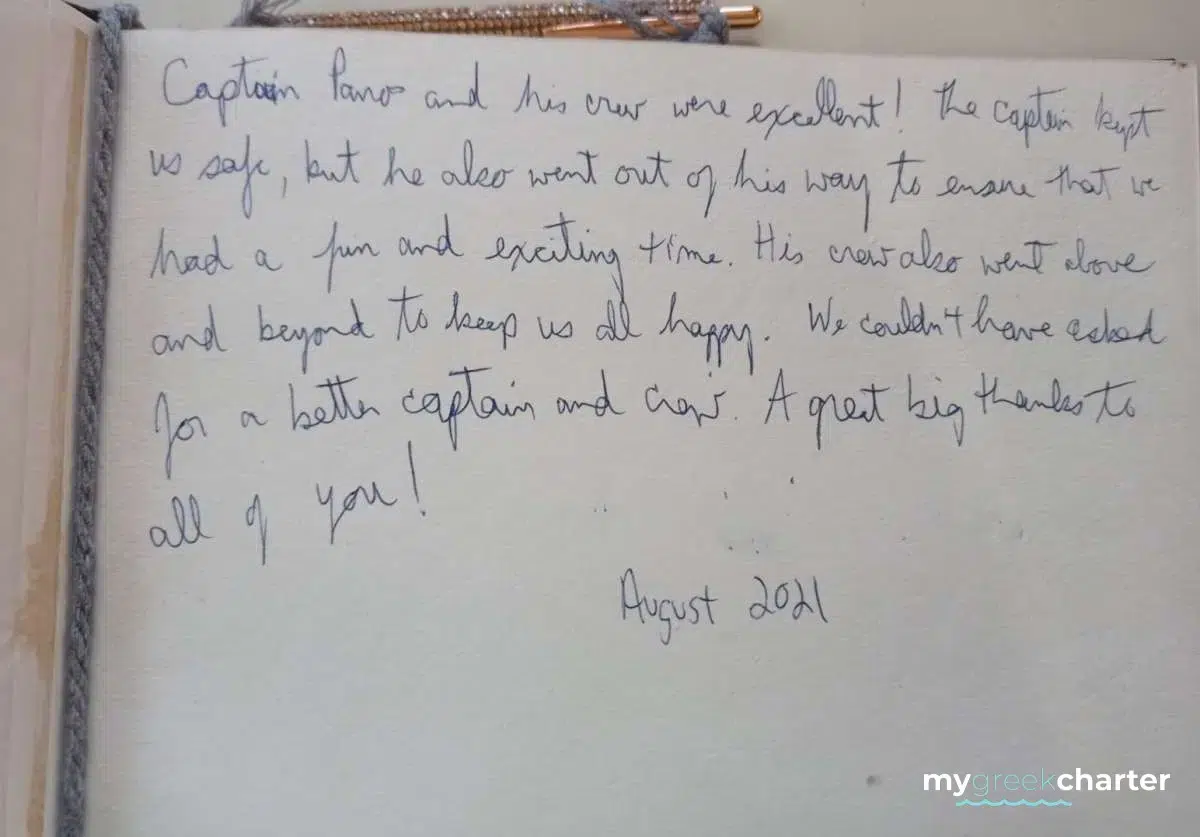 Captain Panos and his crew were excellent! The captain kept
us safe, but he also went out of his way to ensure that we
had a fun and exciting time. His crew also went above
and beyond to keep us all happy. We couldn't have asked
for a better captain and crew. A great big thanks to
all of you!
August 2021
mygreekcharter